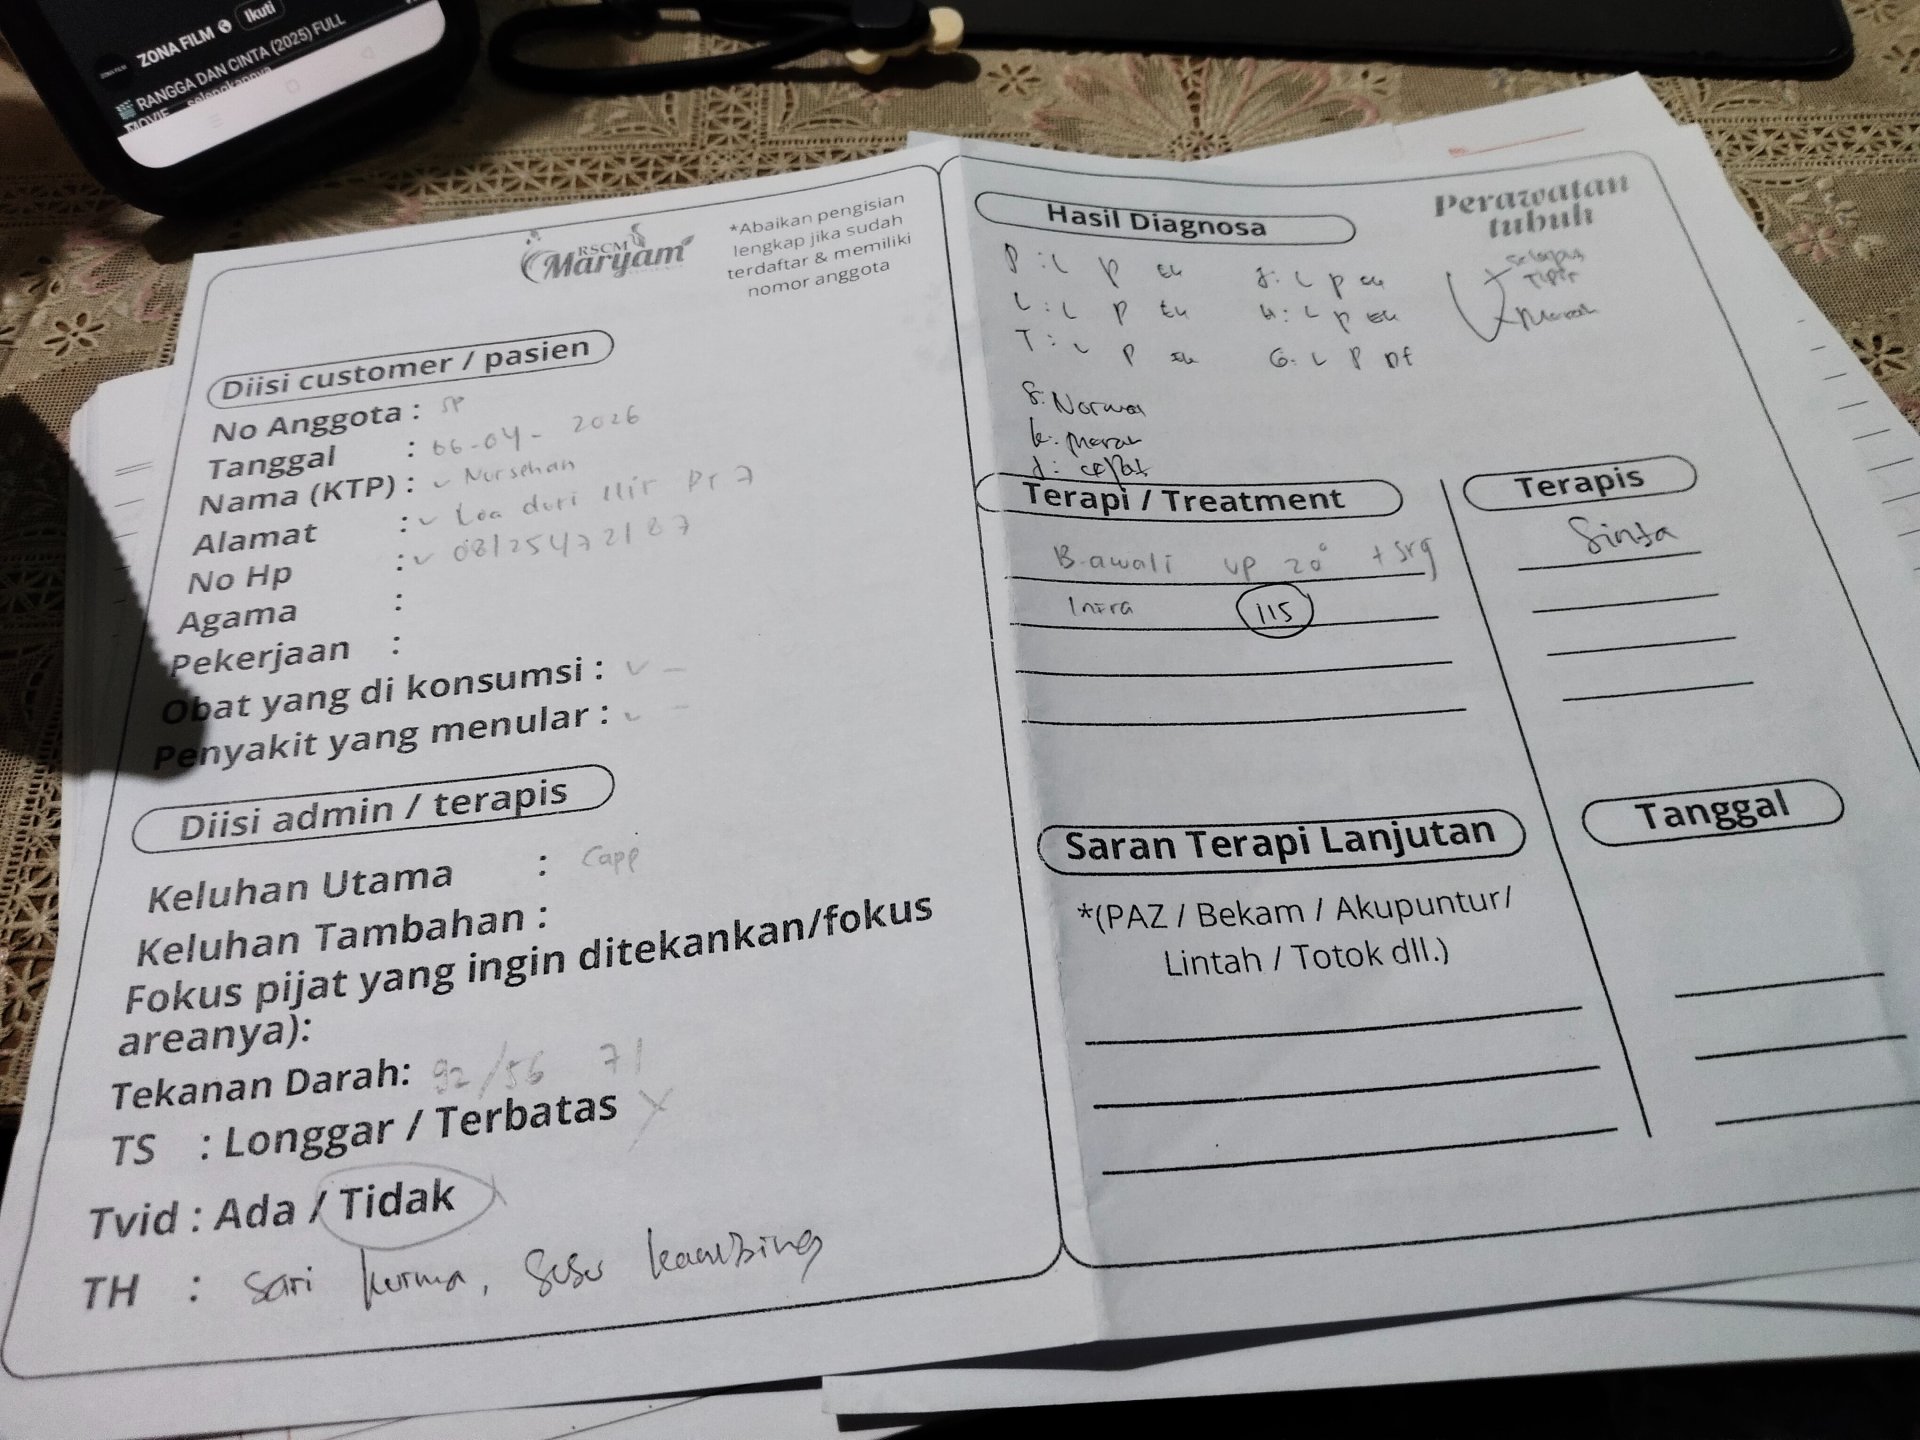 ZONA FILM Ikuti
RANGGA DAN CINTA (2025) FULL
MOVIE... selengkapnya
RSCM
Maryam
*Abaikan pengisian
lengkap jika sudah
terdaftar & memiliki
nomor anggota
Diisi customer / pasien
No Anggota : SP
Tanggal : 06-04-2026
Nama (KTP) : Nursehan
Alamat : Loa duri Ilir Pr 7
No Hp : 08125472187
Agama :
Pekerjaan :
Obat yang di konsumsi : -
Penyakit yang menular : -
Diisi admin / terapis
Keluhan Utama : Cape
Keluhan Tambahan :
Fokus pijat yang ingin ditekankan/fokus
areanya):
Tekanan Darah: 92/56 71
TS : Longgar / Terbatas
Tvid : Ada / Tidak
TH : Sari kurma, Susu kambing
Perawatan
tubuh
Hasil Diagnosa
P : L P
J : L P
L : L P
H : L P
T : L P
G : L P Df
Selaput
Tipis
Merah
S: Normal
K: Merah
J: Cepat
Terapi / Treatment
B. awali up 20° + srg
Infra 115
Terapis
Sinta
Saran Terapi Lanjutan
*(PAZ / Bekam / Akupuntur/
Lintah / Totok dll.)
Tanggal